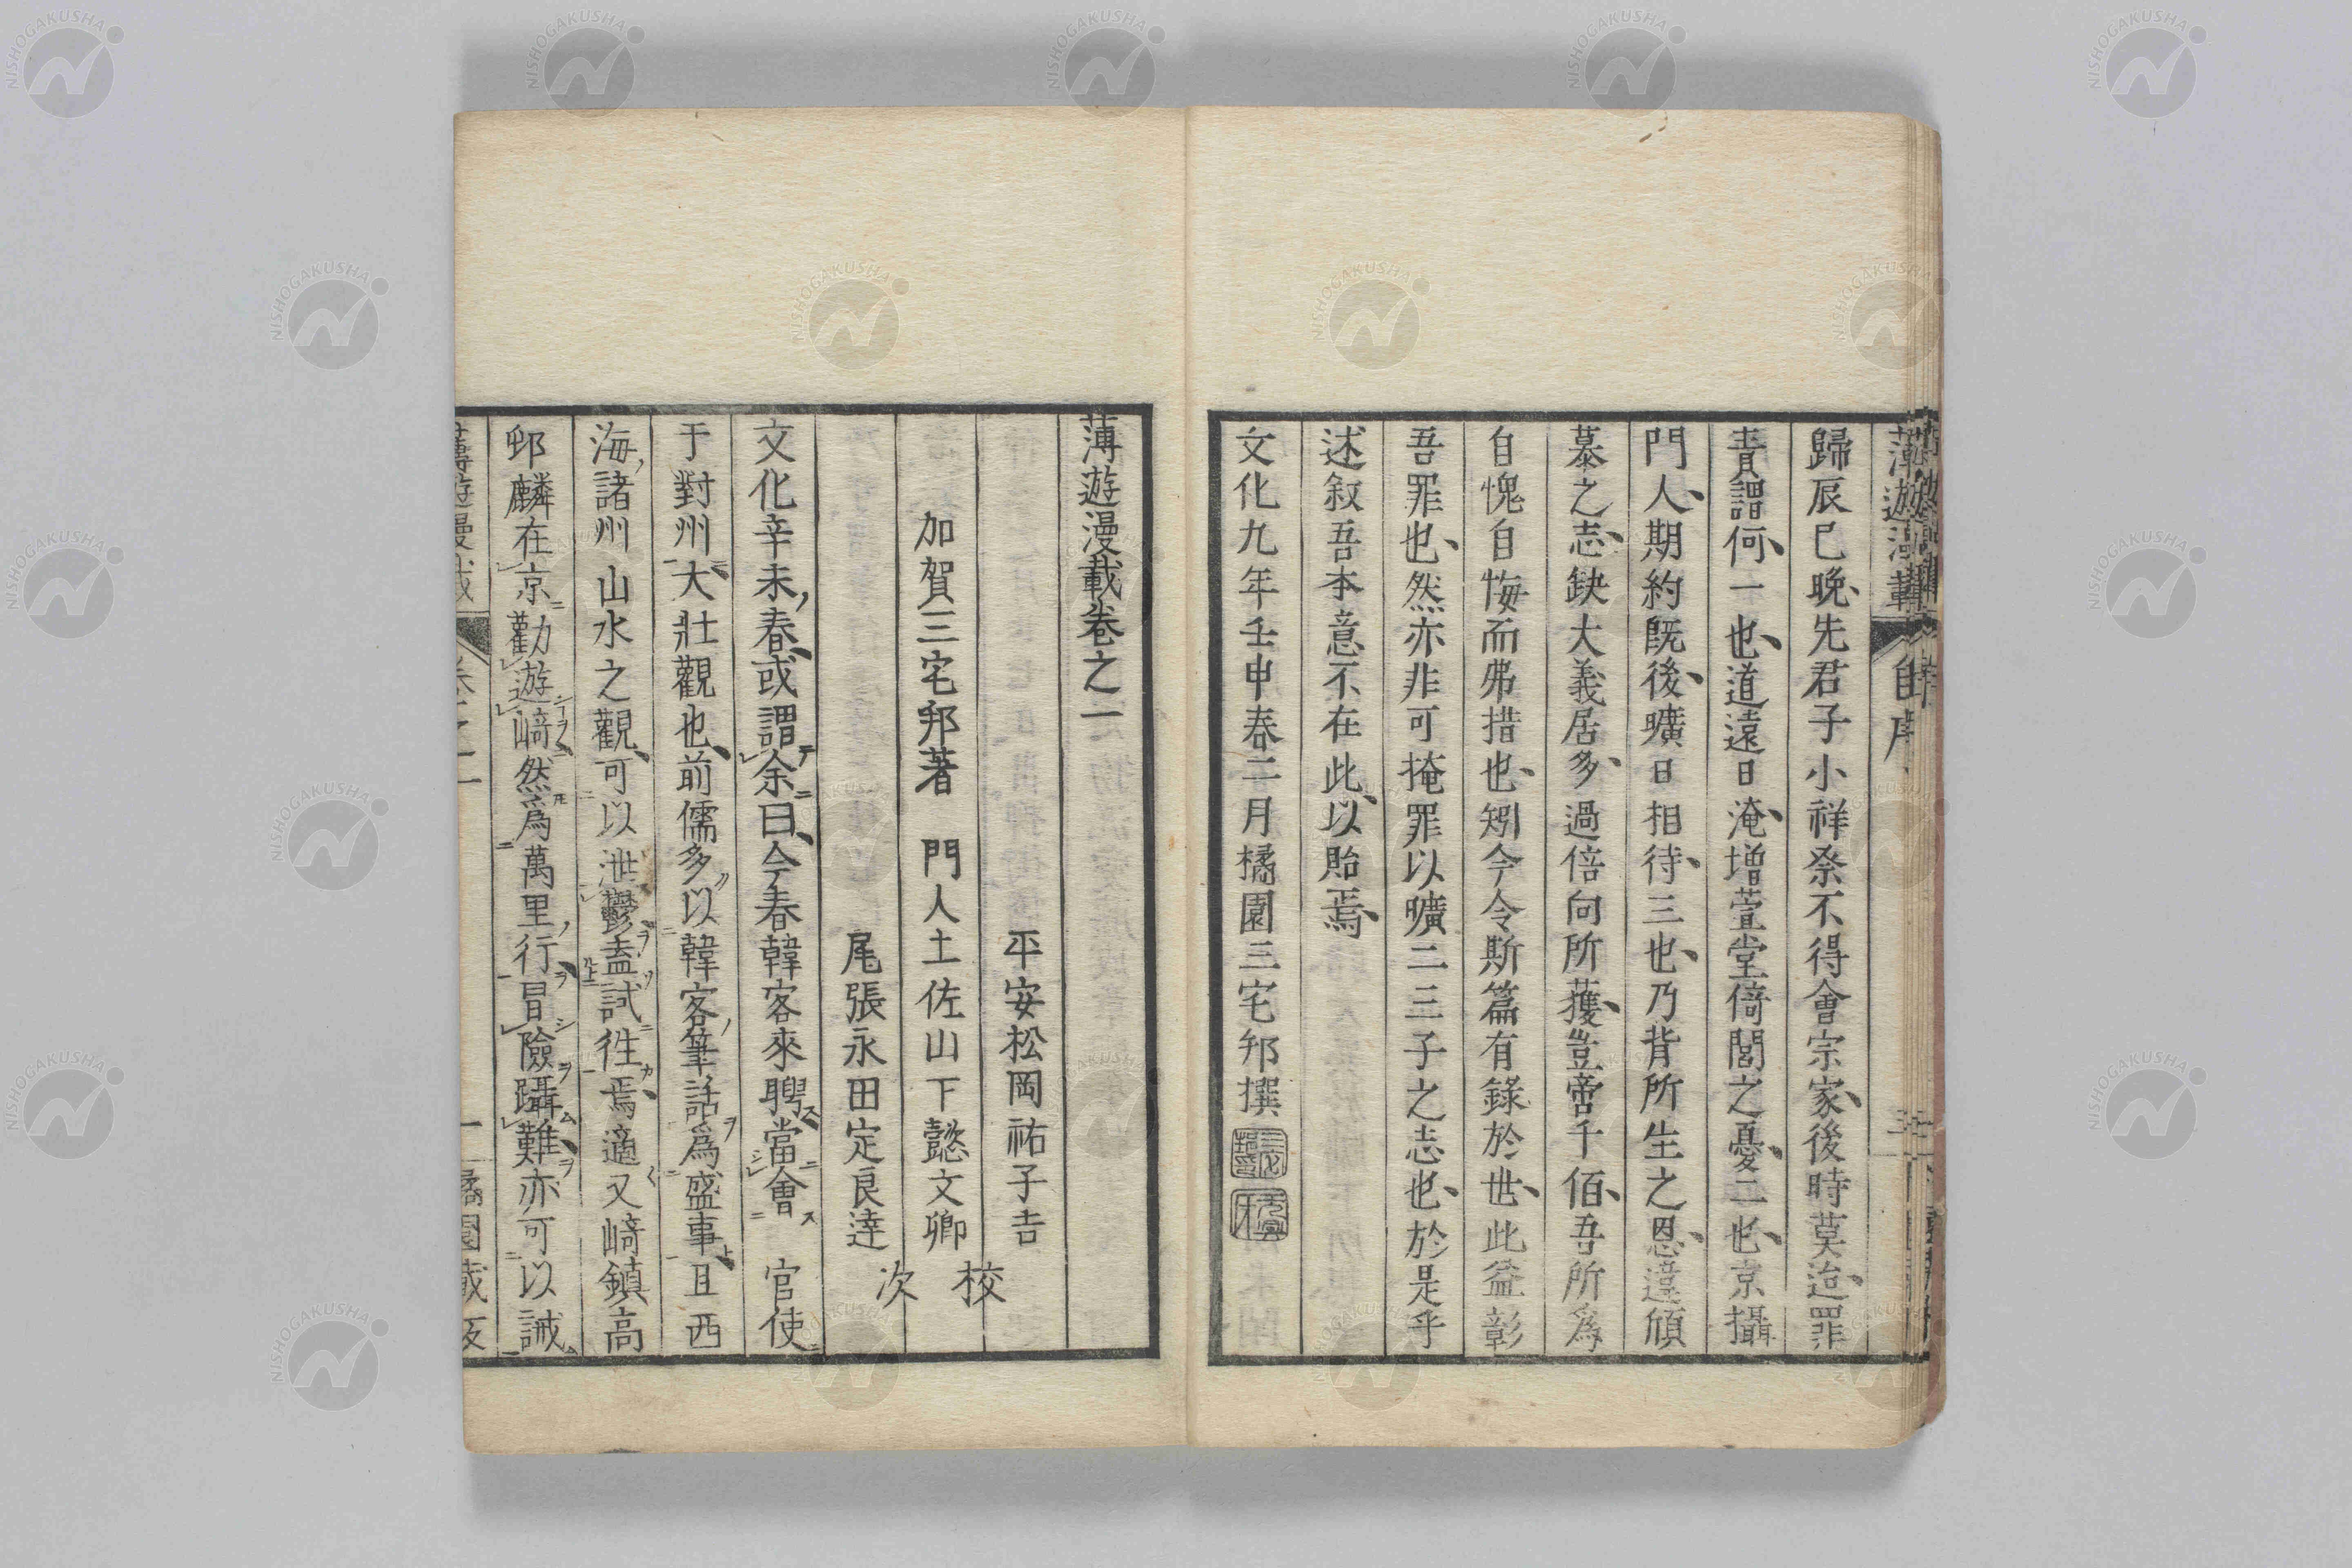 薄遊漫載
自序
三
歸辰已晩、先君子小祥祭不得會宗家、後時莫迨、罪
責謂何、一也、道遠日淹、增萱堂倚閭之憂、二也、京攝
門人、期約既後、曠日相待、三也、乃背所生之恩、違頎
慕之志、缺大義居多、過倍向所獲、豈啻千佰、吾所爲
自愧自悔而弗措也、矧今令斯篇有錄於世、此益彰
吾罪也、然亦非可掩罪以曠二三子之志也、於是乎
述叙吾本意不在此、以貽焉、
文化九年壬申春二月橘園三宅邦撰
薄遊漫載卷之一
平安松岡祐子吉
加賀三宅邦著 門人土佐山下懿文卿 校
尾張永田定良達 次
文化辛未春、或謂余曰、今春韓客來聘當會 官使
于對州大壯觀也、前儒多以韓客筆話爲盛事且西
海諸州山水之觀、可以泄鬱盍試徃焉、適又﨑鎭高
邨麟在京勸遊﨑然爲萬里行、冒險躡難、亦可以誡
薄遊漫載
卷之一
一
橘園藏板
NISHOGAKUSHA